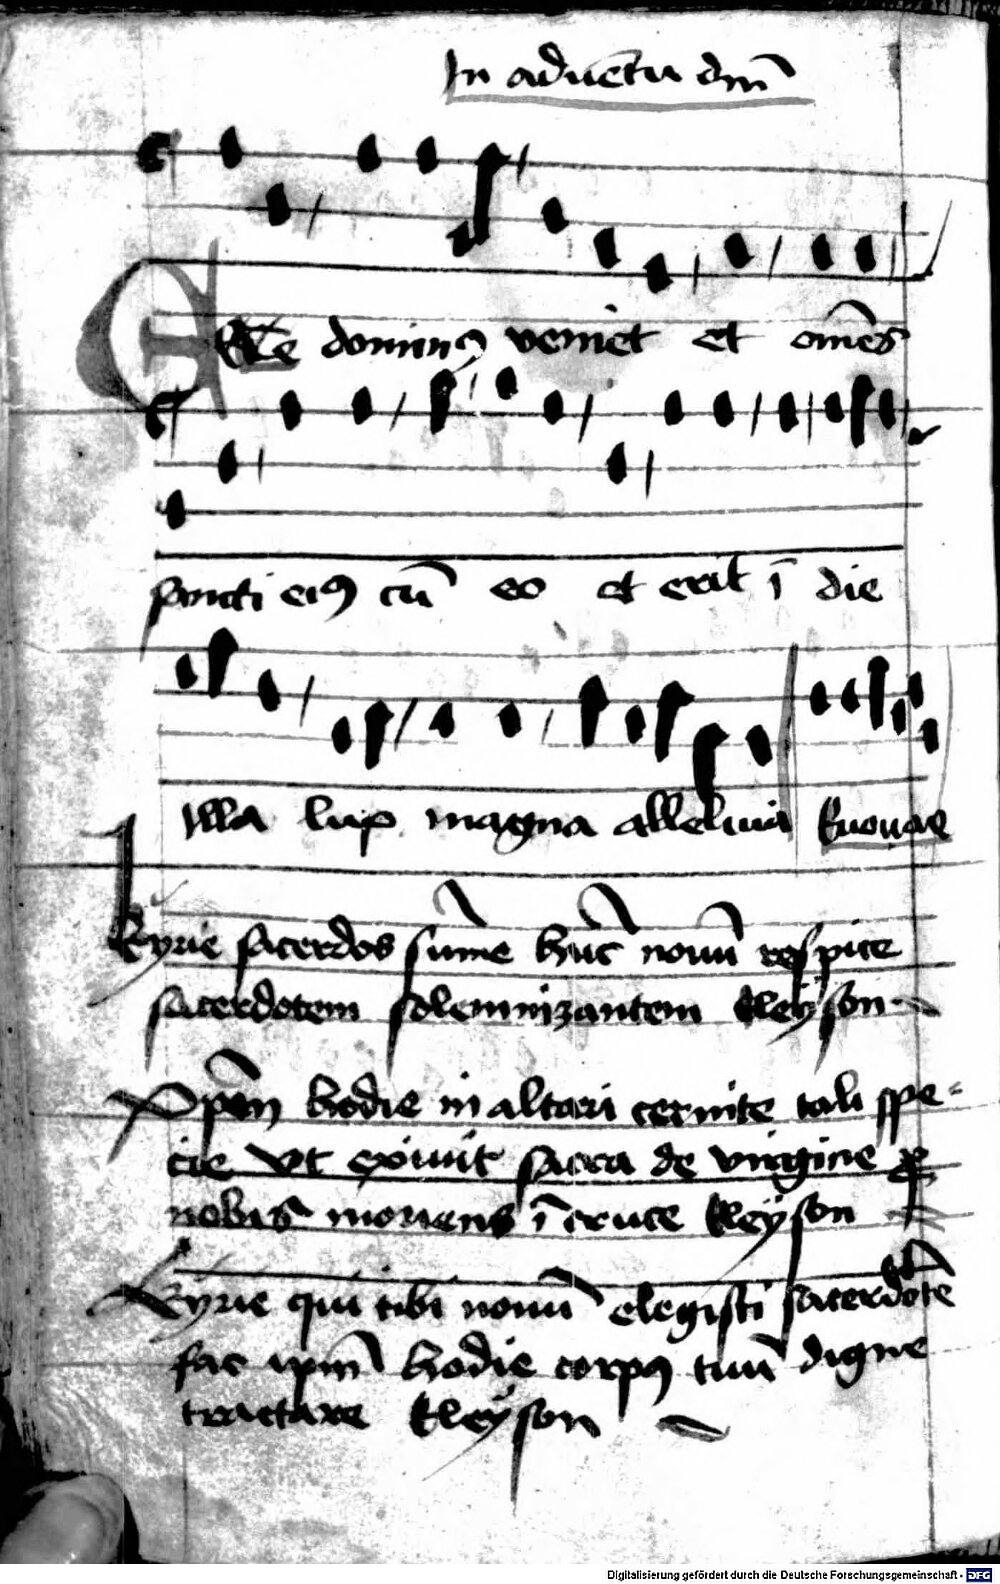 In aduētu dm̄
Ecce dominꝰ veniet et om̄es
sancti eiꝰ cū eo et erit ī die
illa lux magna alleluia Euouae
Kyrie sacerdos sūme hūc nouū respice
sacerdotem solemnizantem kleyson
hodie in altari cernite tali spe-
cie vt exiuit sacra de virgine ꝓ
nobis moriens ī cruce kleyson
Kyrie qui tibi nouū elegisti sacerdotē
fac ipm̄ hodie corpꝰ tuū digne
tractare kleyson
Digitalisierung gefördert durch die Deutsche Forschungsgemeinschaft - DFG